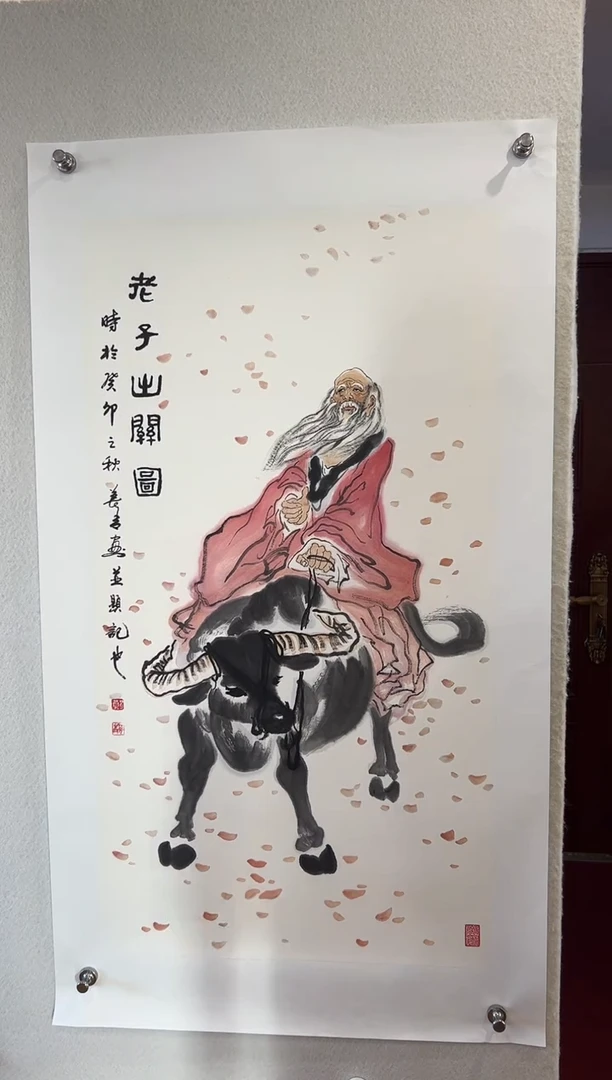 老子出關圖
時於癸卯之秋善青畫並題記也